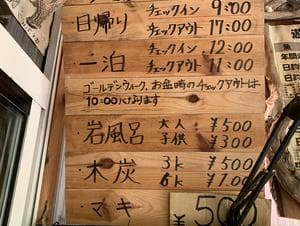 日帰り チェックイン 9:00
チェックアウト 17:00
一泊 チェックイン 12:00
チェックアウト 11:00
ゴールデンウィーク、お盆時のチェックアウトは
10:00になります
・岩風呂 大人 ¥500
子供 ¥300
・木炭 3k ¥500
6k
・マキ
¥500